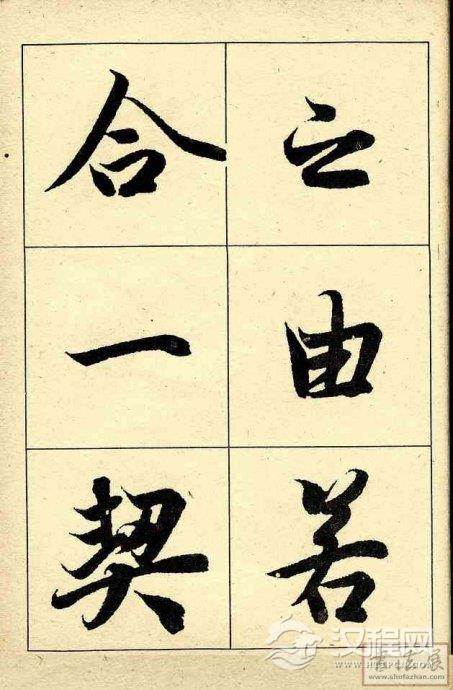 之由若
合一契
汉程网
WWW.HTTPCN.COM
www.shufazhan.com